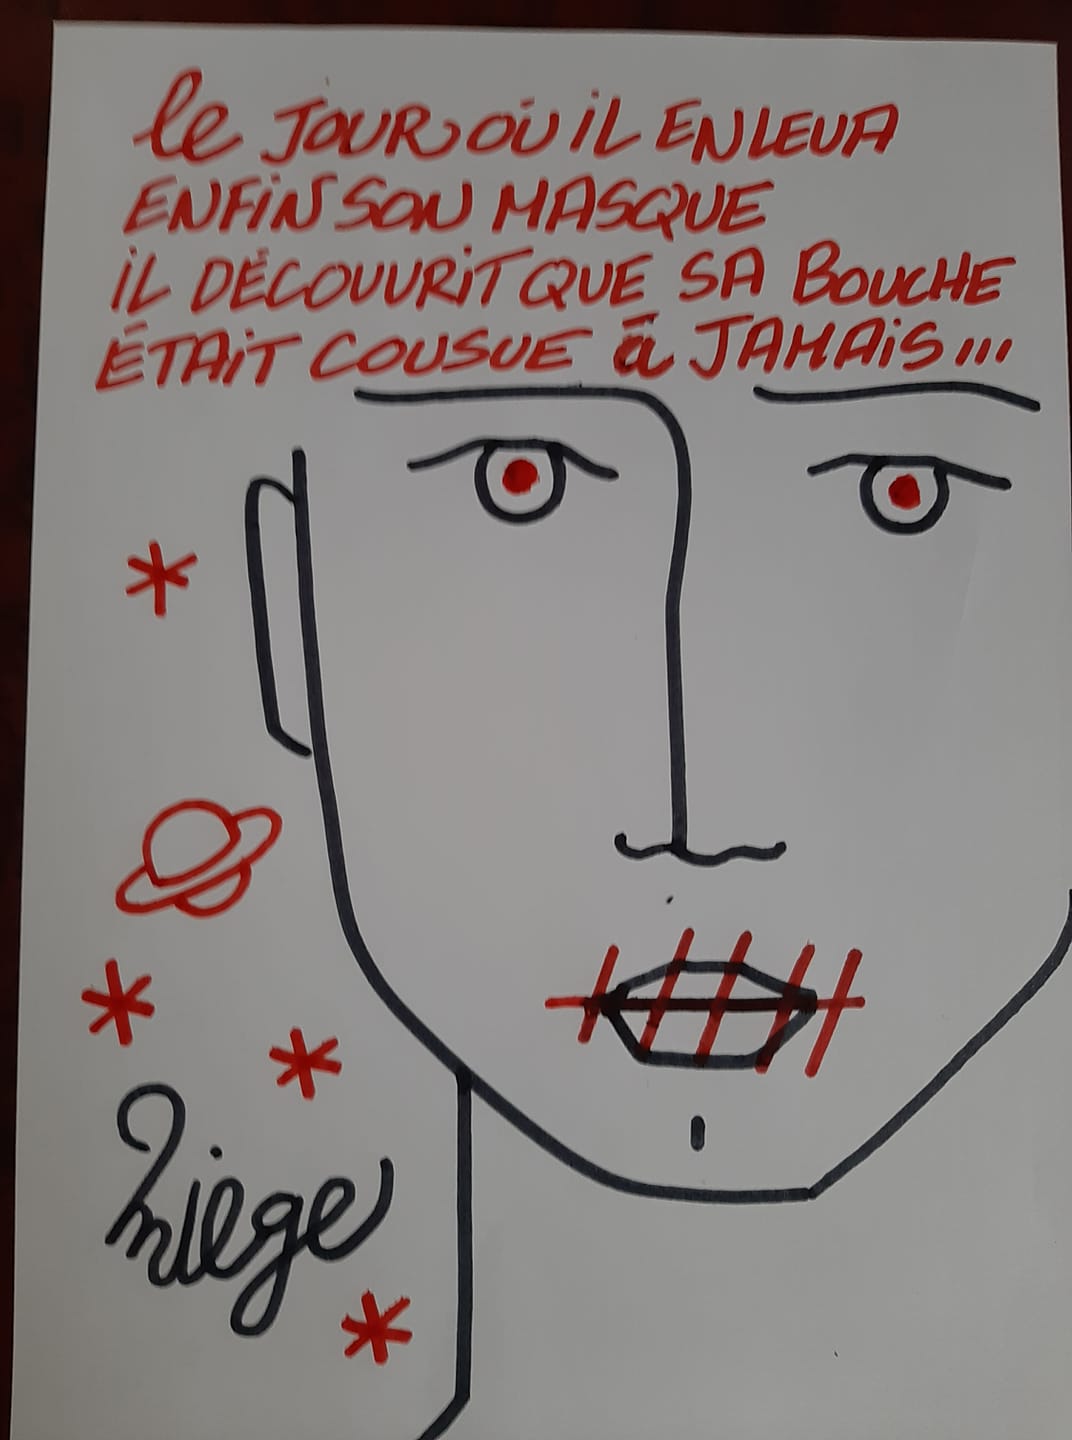 le JOUR OÙ iL ENLEVA
ENFiN SON MASQUE
iL DÉCOUVRiT QUE SA BOUCHE
ÉTAiT COUSUE à JAMAiS...
Miège